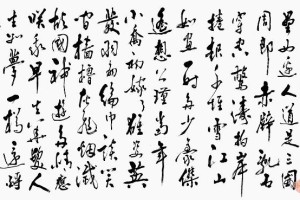 壘西邊人道是三國
周郎赤壁亂石
穿空驚濤拍岸
捲起千堆雪江山
如畫一時多少豪傑
遙想公瑾當年
小喬初嫁了雄姿英
發羽扇綸巾談笑
間檣櫓灰飛煙滅
故國神遊多情應
笑我早生華髮人
生如夢一樽還酹